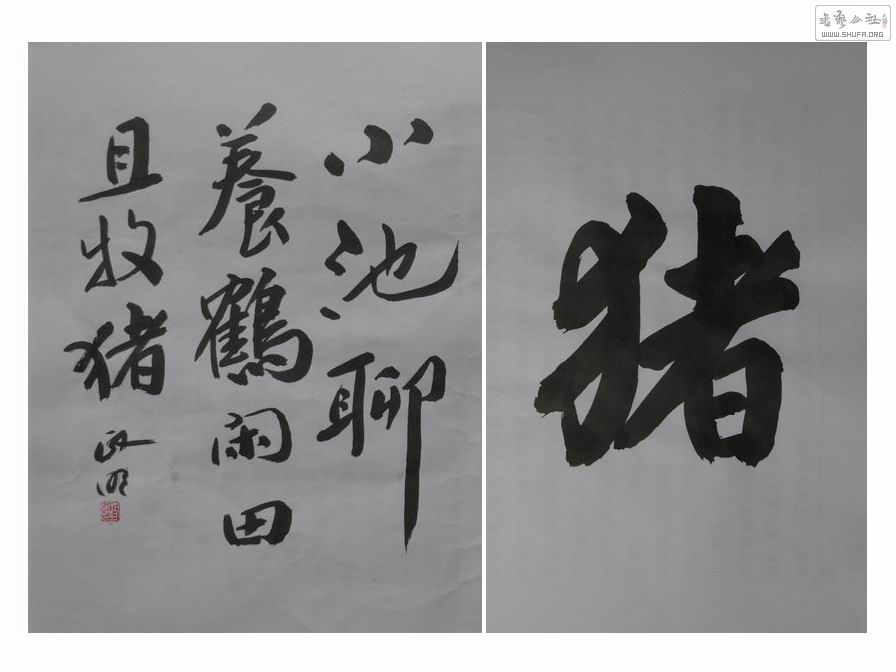 小池聊
養鶴闲田
且牧猪
猪
书艺公社
WWW.SHUFA.ORG